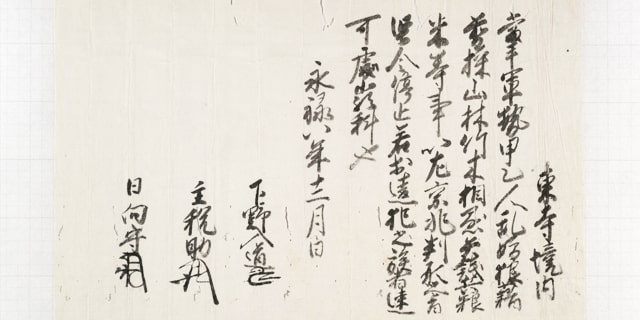 東寺境内
當手軍勢甲乙人乱妨狼藉
採山林竹木相懸矢銭兵粮
米等事以左京兆判形旨
堅令停止若於違犯之族者速
可處嚴科也
永禄八年十二月日
下野入道
主税助
日向守